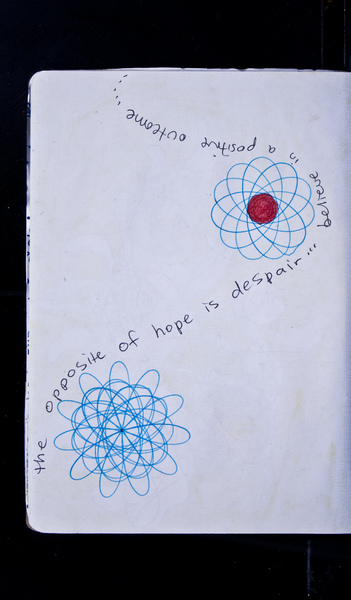 the opposite of hope is despair...
believe in a positive outcome ...